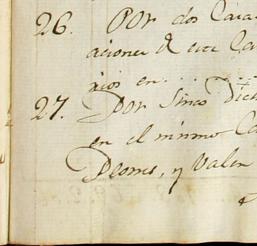 26. Por dos Cava
aciones
nios en....
27. Por Sinco Dich
en el mismo Ca
Peones, y Valen